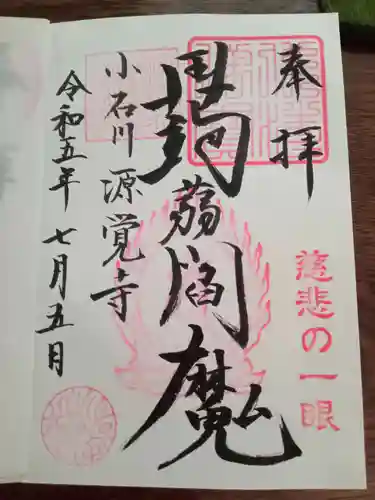 奉拝
慈悲の一眼
蒟蒻閻魔
小石川 源覚寺
令和五年 七月五日